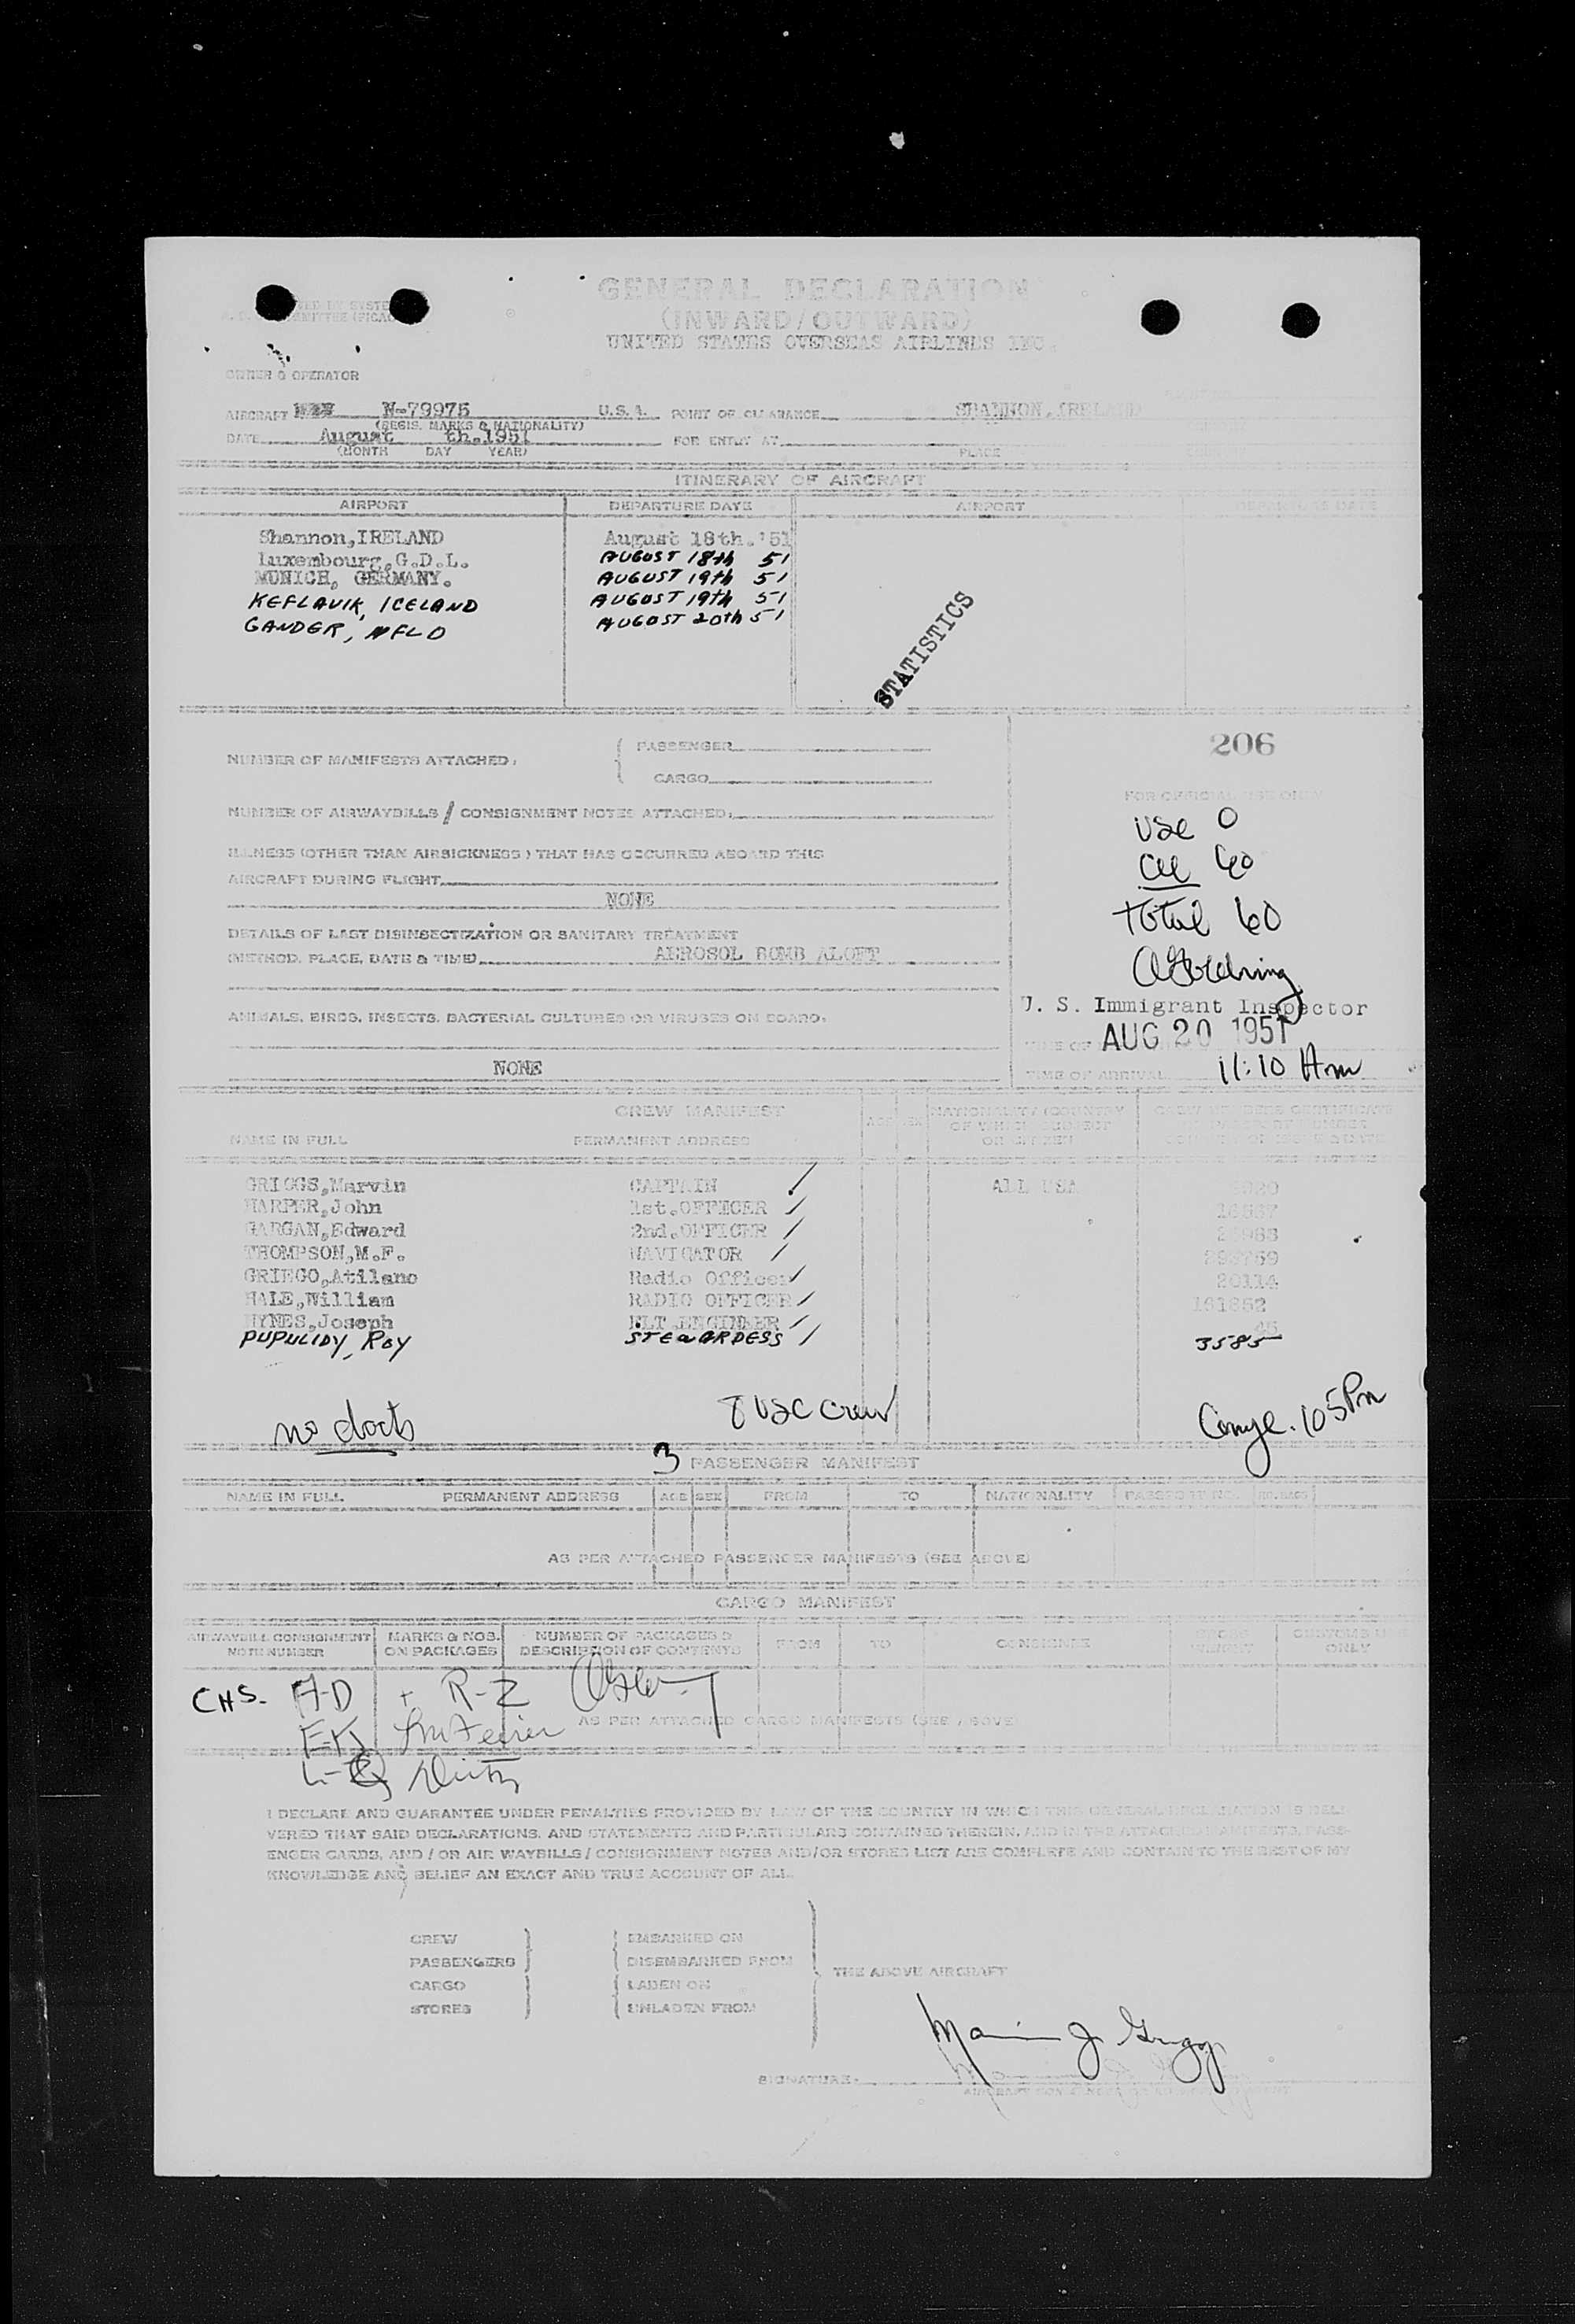 GENERAL DECLARATION
(INWARD/OUTWARD)
UNITED STATES OVERSEAS AIRLINES INC.
OWNER & OPERATOR
AIRCRAFT N-79975 U.S.A. POINT OF CLEARANCE SHANNON, IRELAND
(REGIS. MARKS & NATIONALITY)
DATE August th.1951 FOR ENTRY AT
(MONTH DAY YEAR) PLACE
ITINERARY OF AIRCRAFT
AIRPORT DEPARTURE DATE AIRPORT DEPARTURE DATE
Shannon, IRELAND August 18th.'51
Luxembourg, G.D.L. AUGUST 18th 51
MUNICH, GERMANY. AUGUST 19th 51
KEFLAVIK, ICELAND AUGUST 19th 51
GANDER, NFLD AUGUST 20th 51
STATISTICS
206
NUMBER OF MANIFESTS ATTACHED: PASSENGER
CARGO
NUMBER OF AIRWAYBILLS / CONSIGNMENT NOTES ATTACHED:
FOR OFFICIAL USE ONLY
USC 0
60
Total 60
ILLNESS (OTHER THAN AIRSICKNESS) THAT HAS OCCURRED ABOARD THIS
AIRCRAFT DURING FLIGHT
NONE
DETAILS OF LAST DISINSECTIZATION OR SANITARY TREATMENT
(METHOD, PLACE, DATE & TIME) AEROSOL BOMB ALOFT
U. S. Immigrant Inspector
ANIMALS, BIRDS, INSECTS, BACTERIAL CULTURES OR VIRUSES ON BOARD:
AUG 20 1951
NONE
TIME OF ARRIVAL 11:10 Am
CREW MANIFEST AGE SEX NATIONALITY (COUNTRY
OF WHICH SUBJECT
OR CITIZEN
NAME IN FULL PERMANENT ADDRESS
GRIGGS, Marvin CAPTAIN ALL USA
HARPER, John 1st.OFFICER
GARGAN, Edward 2nd.OFFICER
THOMPSON, M.F. NAVIGATOR
GRIEGO, Atilano Radio Officer 20114
HALE, William RADIO OFFICER 161862
HYNES, Joseph FLT ENGINEER
PUPULIDY, ROY STEWARDESS 3585
no docts 8 USC crew 105 Pm
3 PASSENGER MANIFEST
NAME IN FULL PERMANENT ADDRESS AGE SEX FROM TO NATIONALITY PASSPORT NO.
AS PER ATTACHED PASSENGER MANIFESTS (SEE ABOVE)
CARGO MANIFEST
AIRWAYBILL CONSIGNMENT MARKS & NOS. NUMBER OF PACKAGES & FROM TO CONSIGNEE GROSS WEIGHT CUSTOMS USE ONLY
NOTE NUMBER ON PACKAGES DESCRIPTION OF CONTENTS
CHS- A-D + R-Z
AS PER ATTACHED CARGO MANIFESTS (SEE ABOVE)
E-K
L-Q
I DECLARE AND GUARANTEE UNDER PENALTIES PROVIDED BY LAW OF THE COUNTRY IN WHICH THIS GENERAL DECLARATION IS DELI-
VERED THAT SAID DECLARATIONS, AND STATEMENTS AND PARTICULARS CONTAINED THEREIN, AND IN THE ATTACHED MANIFESTS, PASS-
ENGER CARDS, AND / OR AIR WAYBILLS / CONSIGNMENT NOTES AND/OR STORES LIST ARE COMPLETE AND CONTAIN TO THE BEST OF MY
KNOWLEDGE AND BELIEF AN EXACT AND TRUE ACCOUNT OF ALL.
CREW EMBARKED ON
PASSENGERS DISEMBARKED FROM
CARGO LADEN ON THE ABOVE AIRCRAFT
STORES UNLADEN FROM
Marvin J Griggs
SIGNATURE: